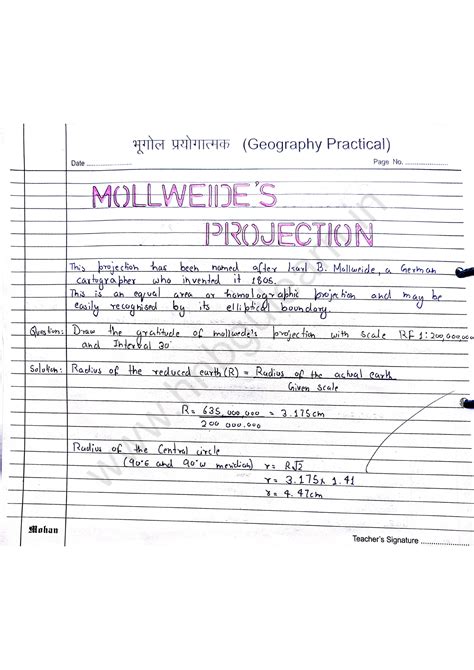 भूगोल प्रयोगात्मक (Geography Practical)
Date ................... Page No. ...............
MOLLWEIDE'S
PROJECTION
This projection has been named after Karl B. Mollweide, a German
cartographer who invented it 1805.
This is an equal area or homolographic projection and may be
easily recognised by its elliptical boundary.
Question: Draw the gratitude of mollwede's projection with scale RF 1:200,000,000
and Interval 30°
Solution: Radius of the reduced earth (R) = Radius of the actual earth
Given scale
R = 635,000,000 = 3.175cm
200 000.000
Radius of the Central circle
(90°E and 90°W meridian) r = R√2
r = 3.175x 1.41
r = 4.47cm
Mohan
Teacher's Signature ..................